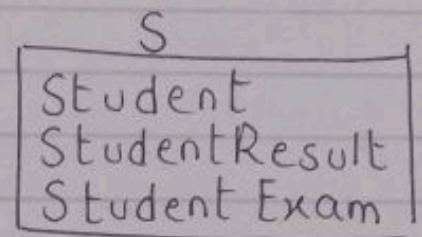 S
Student
StudentResult
Student Exam